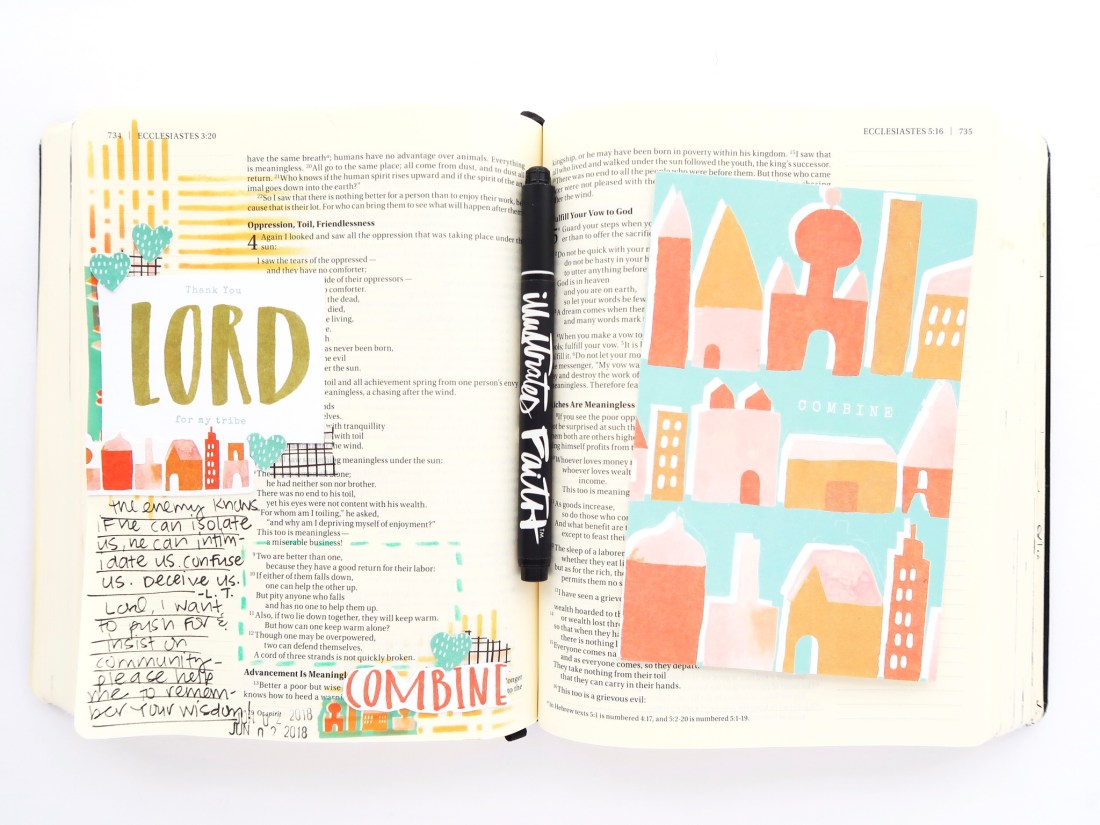 734 | ECCLESIASTES 3:20
have the same breath; humans have no advantage over animals. Everything
is meaningless. 20All go to the same place; all come from dust, and to dust all
return. 21Who knows if the human spirit rises upward and if the spirit of the an
imal goes down into the earth?"
22So I saw that there is nothing better for a person than to enjoy their work, be
cause that is their lot. For who can bring them to see what will happen after them
Oppression, Toil, Friendlessness
4 Again I looked and saw all the oppression that was taking place under the
sun:
I saw the tears of the oppressed —
and they have no comforter;
ide of their oppressors —
comforter.
the dead,
died,
e living,
as never been born,
he evil
er the sun.
toil and all achievement spring from one person's envy
eaningless, a chasing after the wind.
nds
selves.
with tranquility
with toil
he wind.
g meaningless under the sun:
he had neither son nor brother.
There was no end to his toil,
yet his eyes were not content with his wealth.
"For whom am I toiling," he asked,
"and why am I depriving myself of enjoyment?"
This too is meaningless —
a miserable business!
9Two are better than one,
because they have a good return for their labor:
10If either of them falls down,
one can help the other up.
But pity anyone who falls
and has no one to help them up.
11Also, if two lie down together, they will keep warm.
But how can one keep warm alone?
12Though one may be overpowered,
two can defend themselves.
A cord of three strands is not quickly broken.
Advancement Is Meaningl
13Better a poor but wise
knows how to heed a warni
Thank You
LORD
for my tribe
the enemy knows
if he can isolate
us, he can intim-
idate us. confuse
us. Deceive us.
-L.T.
Lord, I want
to push for &
insist on
community-
please help
me to remem-
ber your wisdom
JUN 02 2018
JUN 02 2018
COMBINE
illustrated Faith™
ECCLESIASTES 5:16 | 735
kingship, or he may have been born in poverty within his kingdom. 15I saw that
who lived and walked under the sun followed the youth, the king's successor.
There was no end to all the people who were before them. But those who came
er were not pleased with the
the wind.
ulfill Your Vow to God
Guard your steps when yo
er than to offer the sacrific
Do not be quick with your m
do not be hasty in your h
to utter anything before
God is in heaven
and you are on earth,
so let your words be few
A dream comes when ther
and many words mark
When you make a vow to
ols, fulfill your vow. 5It is b
lfill it. 6Do not let your mo
e messenger, "My vow wa
y and destroy the work of
eaningless. Therefore fea
iches Are Meaningless
If you see the poor opp
be surprised at such th
em both are others highe
ng himself profits from t
Whoever loves money n
whoever loves wealt
income.
This too is meaning
As goods increase,
so do those who con
And what benefit are t
except to feast thei
The sleep of a laborer
whether they eat li
but as for the rich, the
permits them no s
I have seen a griev
wealth hoarded to th
or wealth lost thr
so that when they h
there is nothing l
Everyone comes na
and as everyone comes, so they depart.
They take nothing from their toil
that they can carry in their hands.
16This too is a grievous evil:
In Hebrew texts 5:1 is numbered 4:17, and 5:2-20 is numbered 5:1-19.
COMBINE